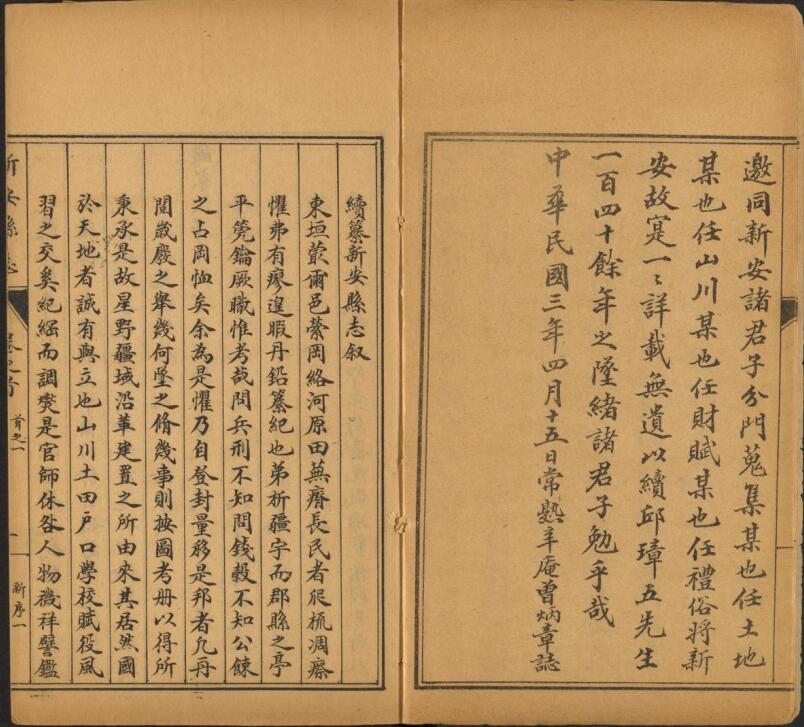 邀同新安諸君子分門蒐集某也任土地
某也任山川某也任財賦某也任禮俗將新
安故寔一々詳載無遺以續邱璋五先生
一百四十餘年之墜緒諸君子勉乎哉
中華民國三年四月十五日常熟辛庵曾炳章誌
續纂新安縣志叙
東垣蕞爾邑縈岡絡河原田蕪瘠長民者爬梳凋瘵
懼弗有瘳遑暇丹鉛纂紀也第析疆宇而郡縣之亭
平筦鑰厥職惟考哉問兵刑不知問錢穀不知公餗
之占罔恤矣余為是懼乃自登封量移是邦者凡再
閱歲廢之舉幾何墜之脩幾事則按圖考册以得所
秉承是故星野疆域沿革建置之所由來其居然國
於天地者誠有與立也山川土田戶口學校賦役風
習之交奚紀綱而調燮是官師休咎人物禨祥譬鑑
新安縣志
卷之首
首之一
一
新序一